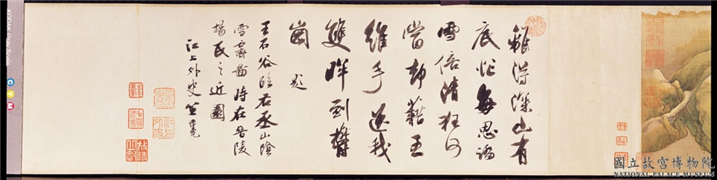 難得深山有
底忙每思
雪倍清狂何
當却藉王
維手送我
雙眸到
題
王石谷臨右丞山陰
雪霽圖時在毘陵
楊氏之近園
江上外史笪重光
國立故宮博物院
NATIONAL PALACE MUSEUM